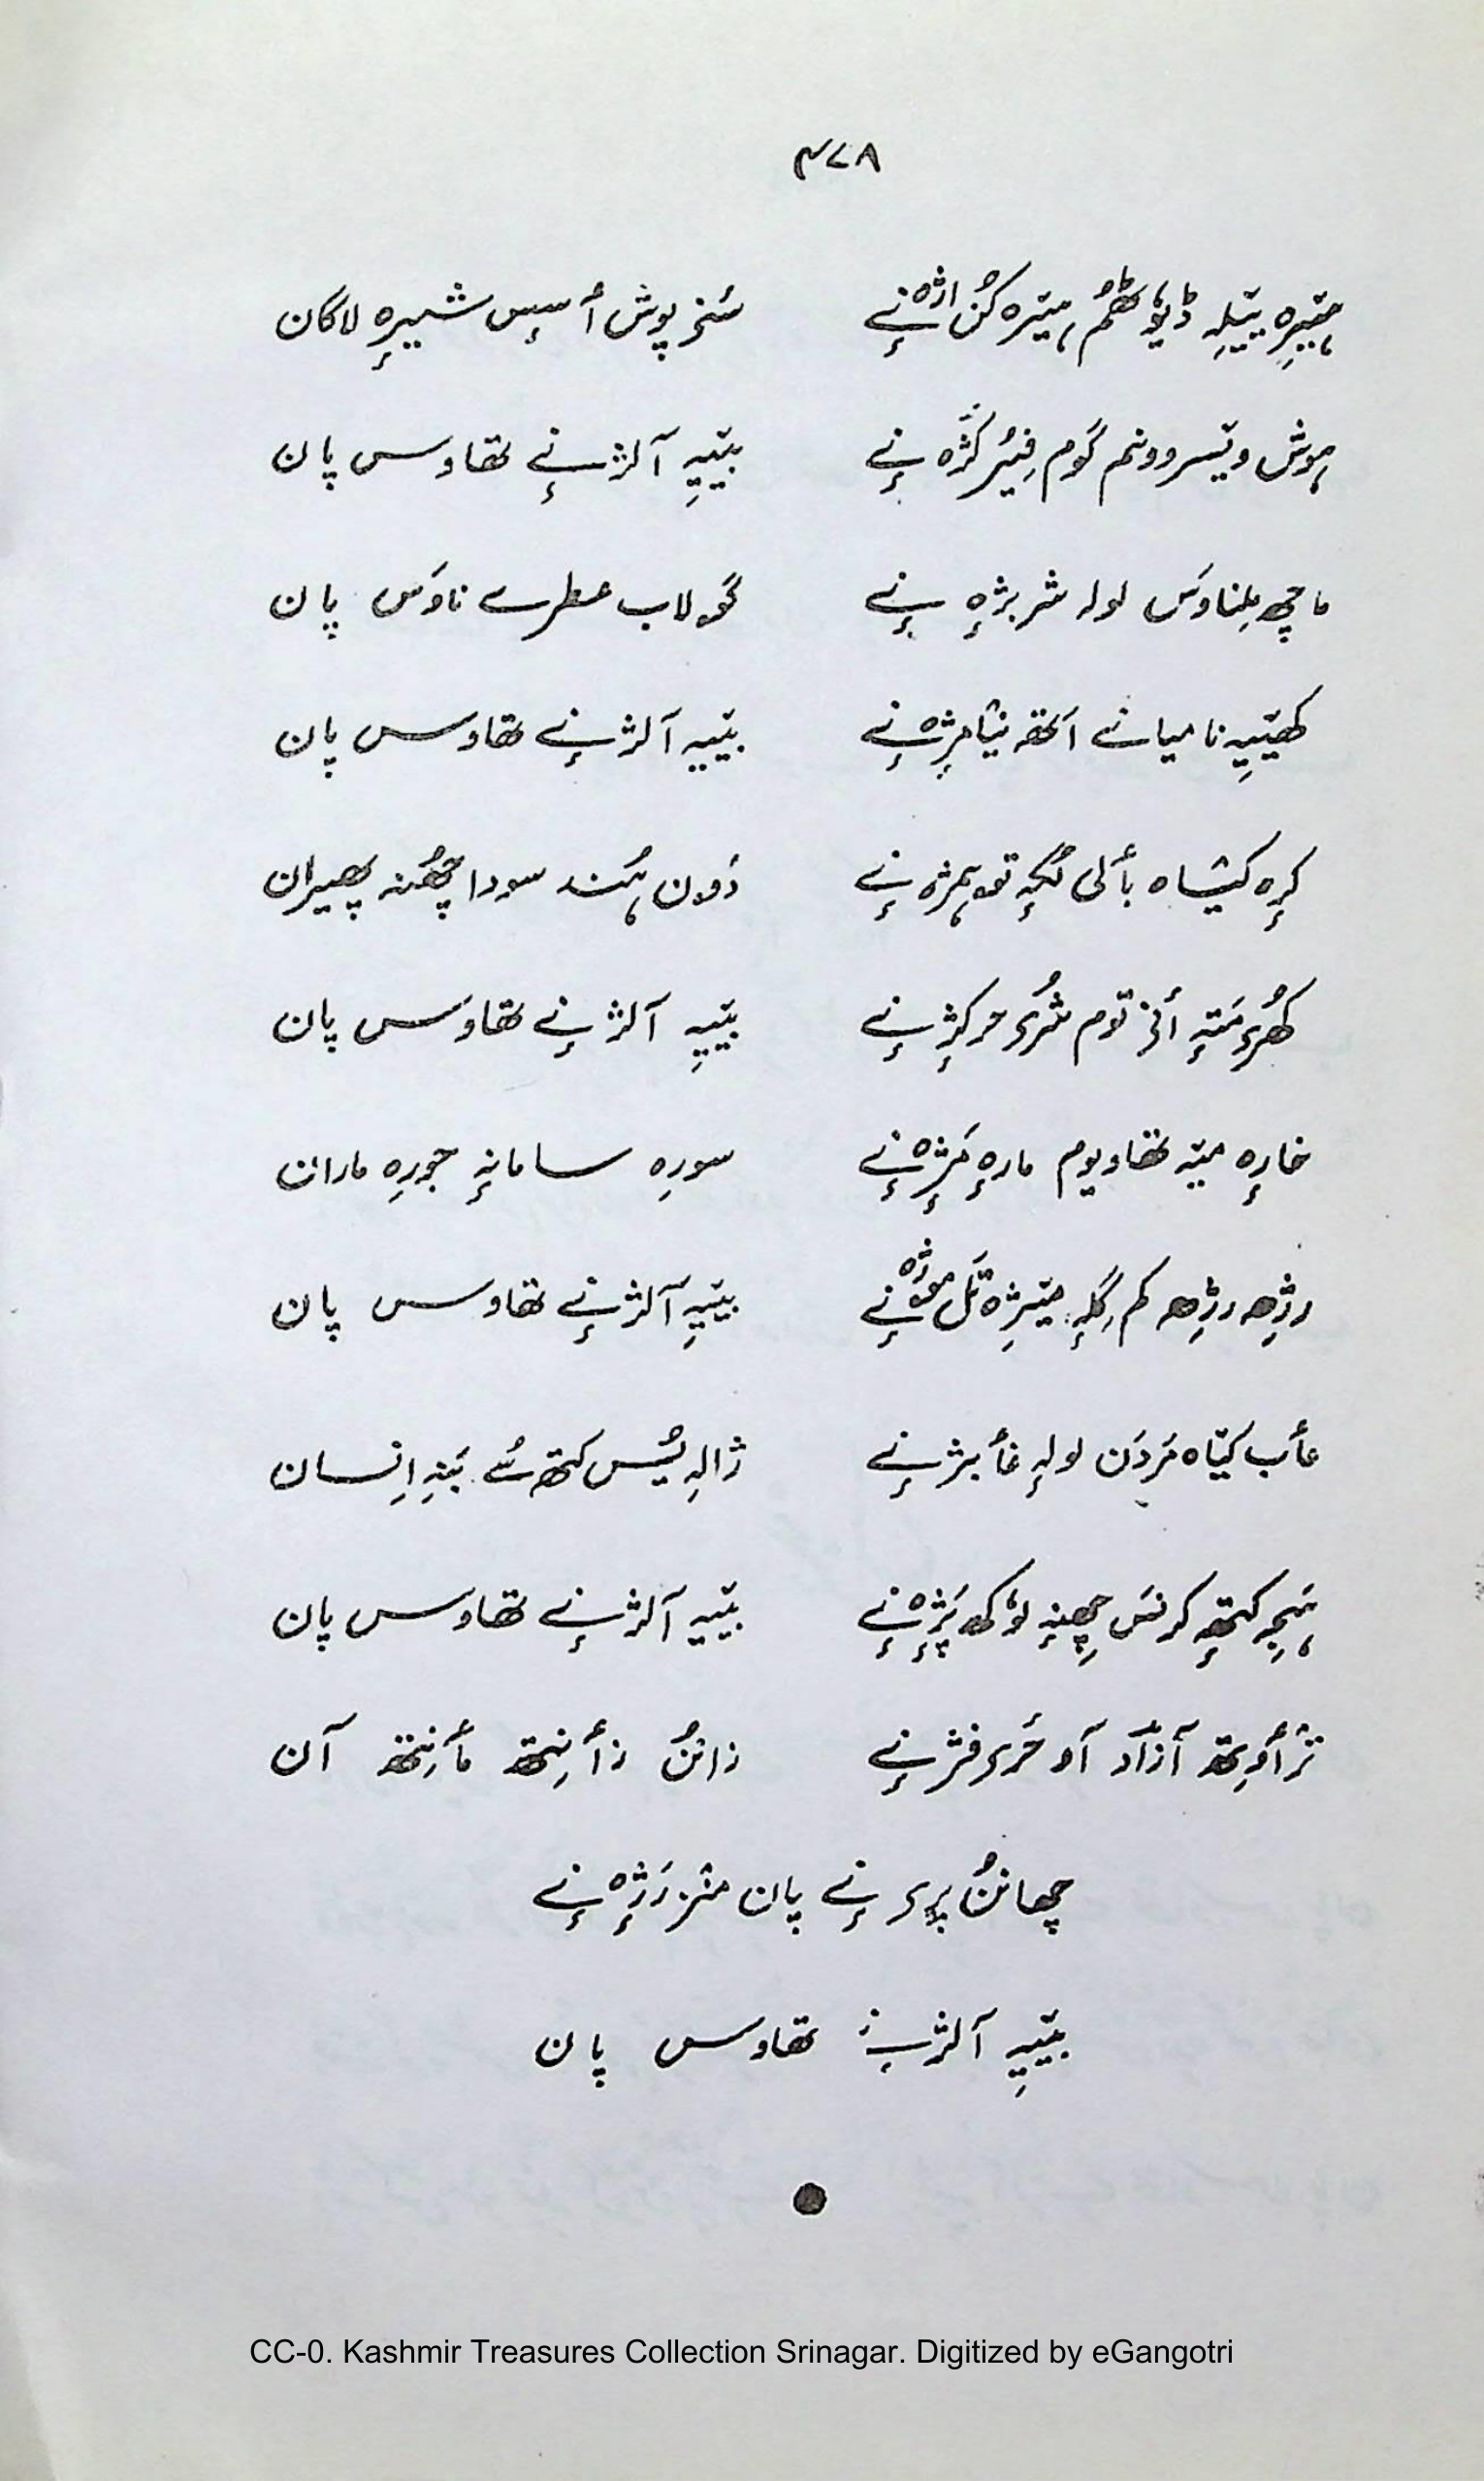 ۴۷۸
ہیٚرِہ ییٚلِہ ڈیوٗٹھُم ہیٚرہ کُن اژہ نےٚ سَنز پوش أسِس شیرِہ لاگان
ہوش ویٚسرووٚنم گوٚم فیٚر کژہ نےٚ بیٚیہِ آلژنےٚ تھاوس پان
ماچھ مِلناوَس لولہ شربژہِ نےٚ گۄلاب عطرے ناوَس پان
کھیٚیہِ نا میانے اَتھہ نیٚا مژہِ نےٚ بیٚیہِ آلژنےٚ تھاوس پان
کرِہ کیٚثاہ بألی لُکہِ تۄہمژہ نےٚ دۄن ہُند سودا چھُنہ پھیران
کھُری مَتہِ أنی توم شُری حرکژِ نےٚ بیٚیہِ آلژنےٚ تھاوس پان
خارِہ میٚہ تھاویوم مارہِ مَژہِ نےٚ سورِہ سامانہِ جورِہ ماران
رژِھہ رژِھہ کم گلہِ میٚژِہ تَل موژہ نےٚ بیٚیہِ آلژنےٚ تھاوس پان
عأب کیٚاہ مَردَن لولہِ غأبژنےٚ ژالہِ یُس کتھ سُے بَنہِ اِنسان
ہَیچہِ کتھہِ کرنَس چھِنہِ لوٗکھ پَژہِ نےٚ بیٚیہِ آلژنےٚ تھاوس پان
ترٛأوِتھ آزاد آو حَری فژنےٚ زانُن زأنِتھ مأنِتھ آن
چھانُن پرِی نےٚ پان منٛز رَژہِ نےٚ
بیٚیہِ آلژنےٚ تھاوس پان
CC-0. Kashmir Treasures Collection Srinagar. Digitized by eGangotri